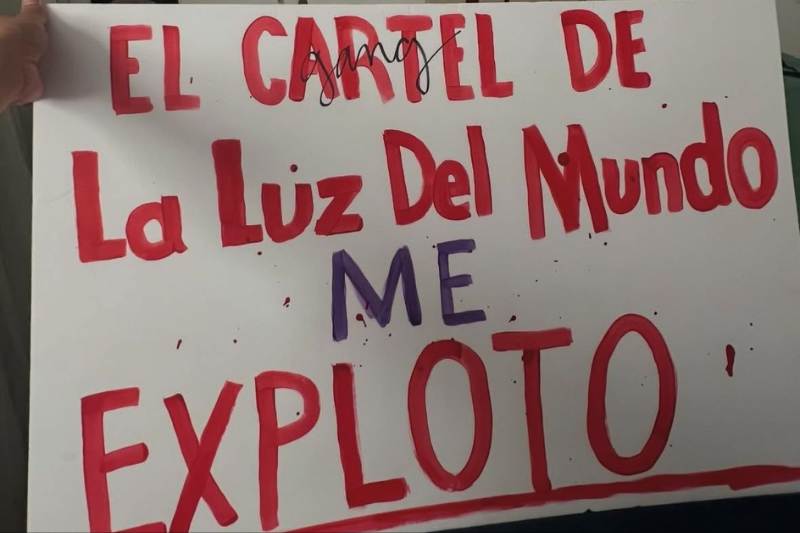 EL CARTEL DE
gang
La Luz Del Mundo
ME
EXPLOTO